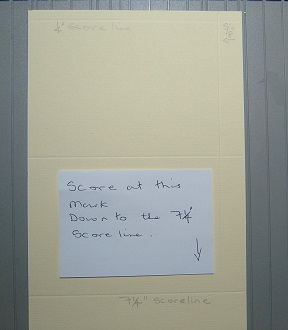 ½" score line
Score at this
Mark
Down to the 7¼"
Score line.
7¼" scoreline